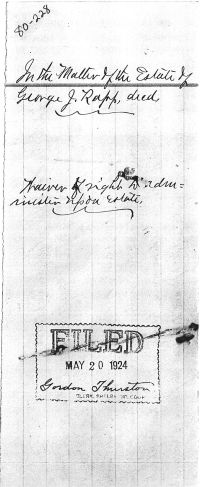 80-228
In the Matter of the Estate of
George J. Rapp, decd.
Waiver of right to adm=
inister upon Estate.
FILED
MAY 20 1924
Gordon Thurston
CLERK SHELBY CIR. COURT